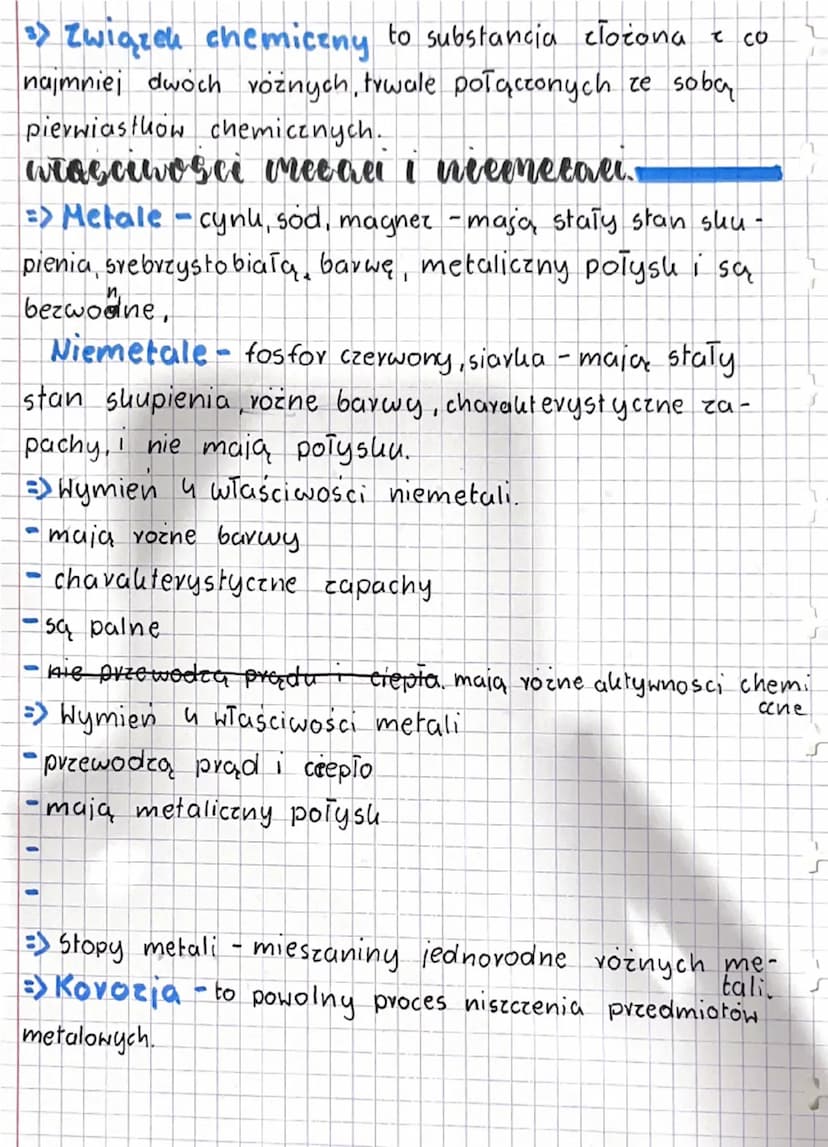 => Związek chemiczny to substancja złożona z co
najmniej dwóch różnych, trwale połączonych ze sobą
pierwiastków chemicznych.
właściwości metali i niemetali.
=> Metale - cynk, sód, magnez - mają stały stan sku-
pienia, srebrzystobiałą, barwę, metaliczny połysk i są
bezwonne,
Niemetale - fosfor czerwony, siarka - mają stały
stan skupienia, różne barwy, charakterystyczne za-
pachy, i nie mają połysku.
=> Wymień 4 właściwości niemetali.
- mają rożne barwy
- charakterystyczne zapachy
- są palne
- nie przewodzą prądu i ciepła. mają różne aktywnosci chemi
czne
=> Wymień 4 właściwości metali
- przewodzą prąd i ciepło
- mają metaliczny połysk
-
-
=> Stopy metali - mieszaniny jednorodne różnych me-
tali.
=> Korozja - to powolny proces niszczenia przedmiotów
metalowych.